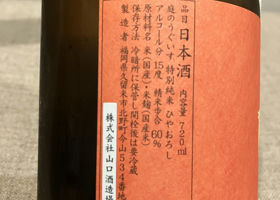 品目 日本酒 内容量 720ml
庭のうぐいす 特別純米 ひやおろし
アルコール分 15度 精米歩合 60%
原材料名 米(国産)・米麹(国産米)
保存方法 冷暗所に保管し開栓後は要冷蔵
製造者 福岡県久留米市北野町今山534番地1
株式会社 山口酒造場